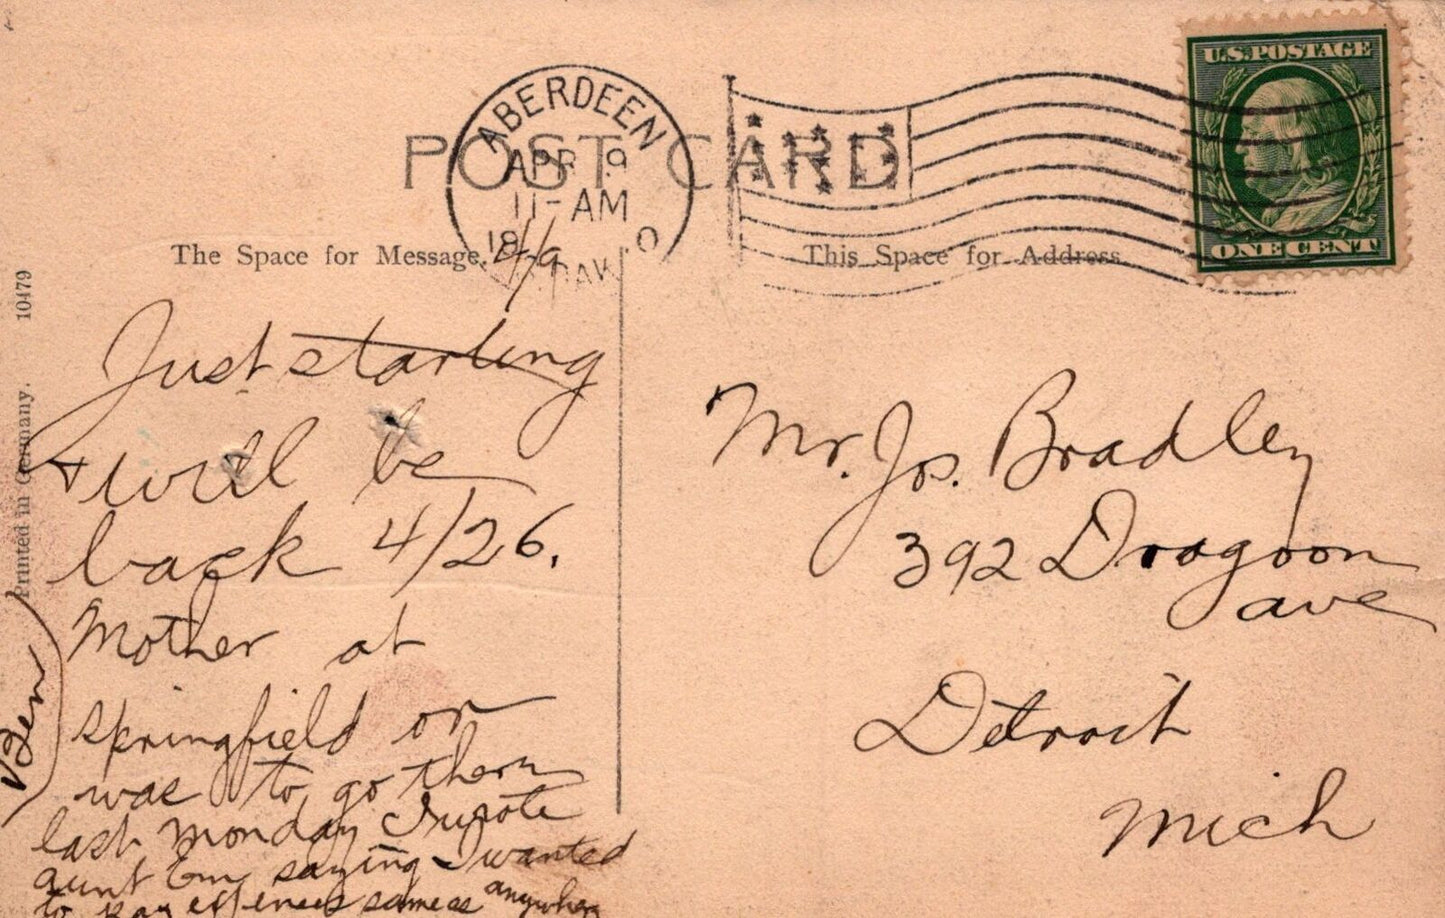 U.S. POSTAGE
ONE CENT
POST CARD
ABERDEEN
APR 9
11-AM
The Space for Message.
This Space for Address.
4/9
Just starting
+ will be
back 4/26.
Mother at
Springfield or
was to go there
last Monday I wrote
aunt Em saying I wanted
to pay expenses same as anywhere
Ben
Printed in Germany. 10479
Mr. Jos. Bradley
392 Dragoon
ave
Detroit
Mich